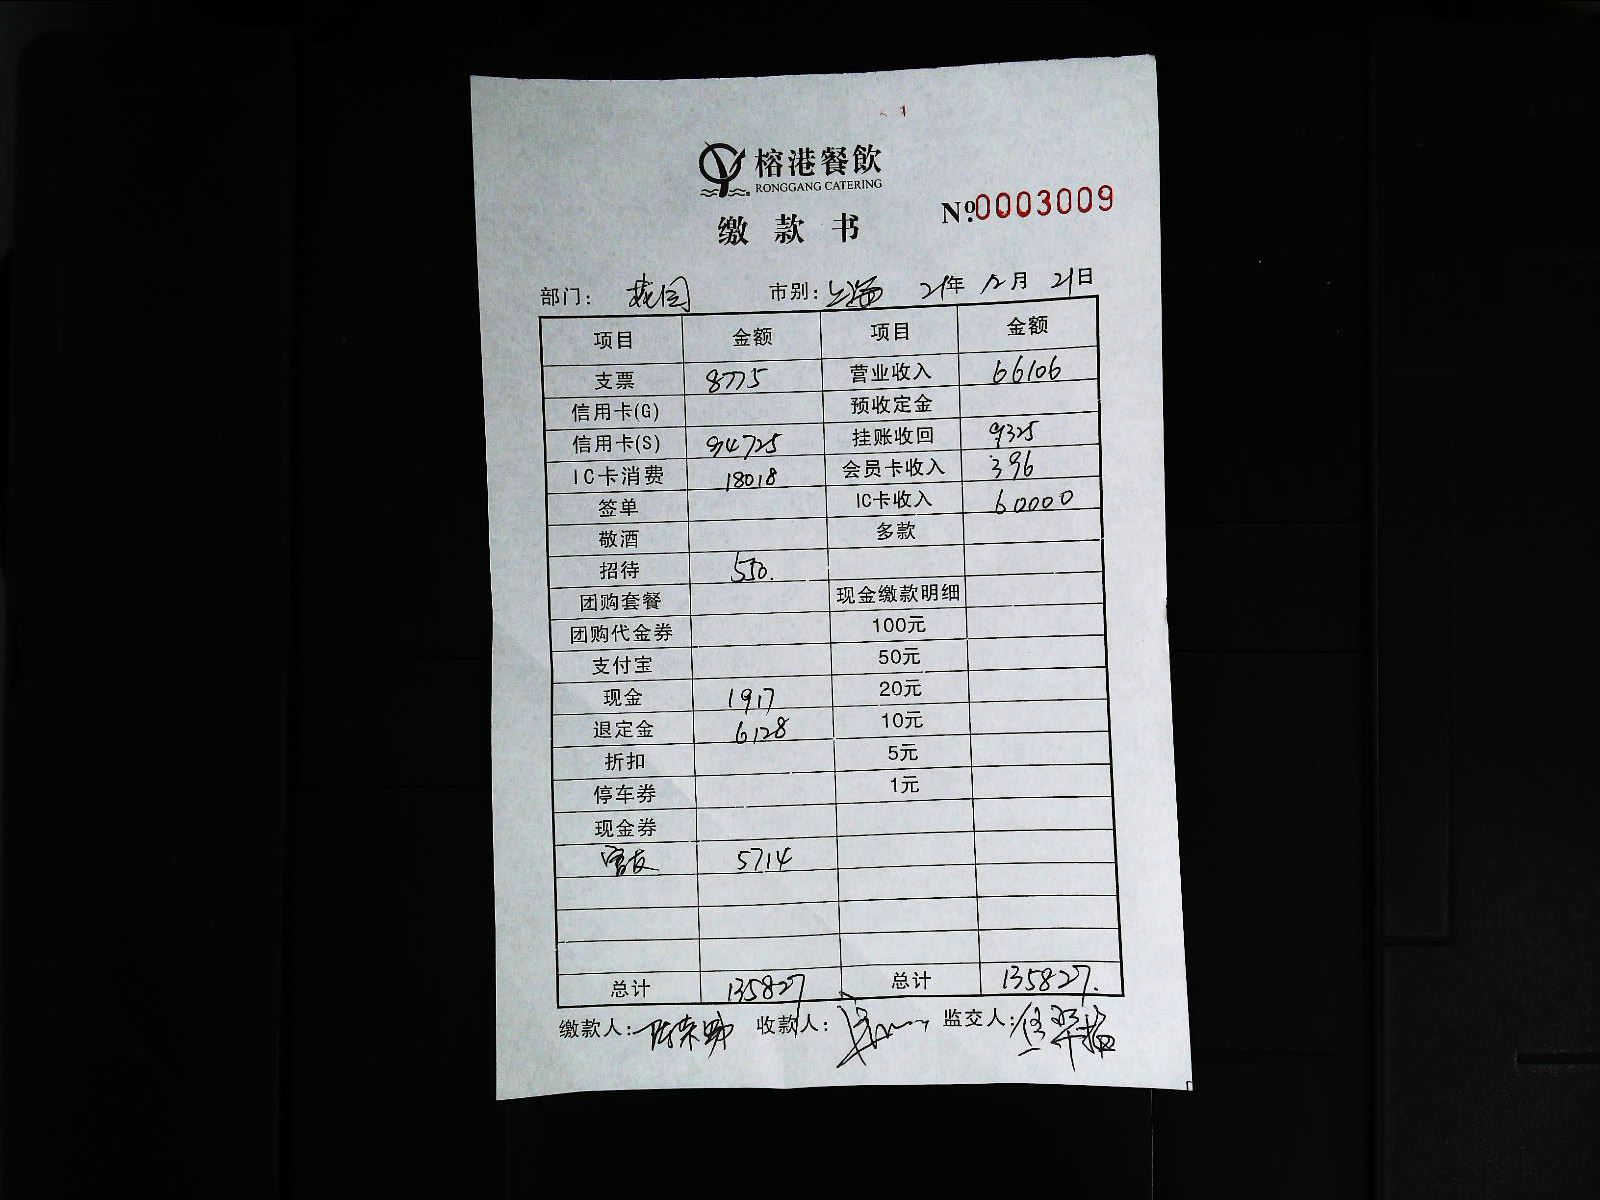 榕港餐飲
RONGGANG CATERING
缴款书 Nº.0003009
部门: 花园 市别: 上海 21年 12月 21日
项目 金额 项目 金额
支票 8775 营业收入 66106
信用卡(G) 预收定金
信用卡(S) 94725 挂账收回 9325
IC卡消费 18018 会员卡收入 396
签单 IC卡收入 60000
敬酒 多款
招待 550.
团购套餐 现金缴款明细
团购代金券 100元
支付宝 50元
现金 1917 20元
退定金 6128 10元
折扣 5元
停车券 1元
现金券
5714
总计 135827 总计 135827.
缴款人: 收款人: 监交人: